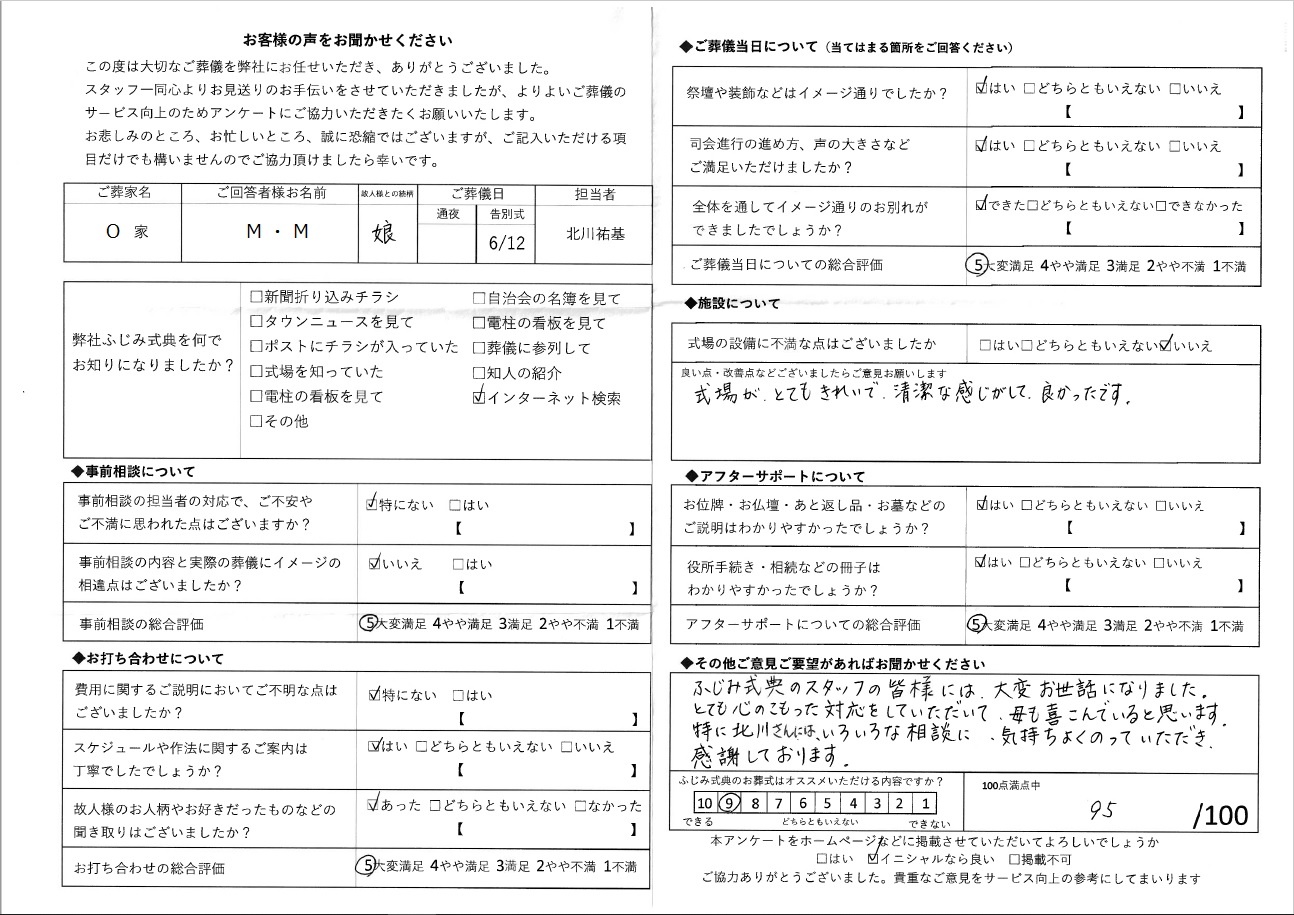 お客様の声をお聞かせください
この度は大切なご葬儀を弊社にお任せいただき、ありがとうございました。
スタッフ一同心よりお見送りのお手伝いをさせていただきましたが、よりよいご葬儀の
サービス向上のためアンケートにご協力いただきたくお願いいたします。
お悲しみのところ、お忙しいところ、誠に恐縮ではございますが、ご記入いただける項
目だけでも構いませんのでご協力頂けましたら幸いです。
ご葬家名 ご回答者様お名前 故人様との続柄 ご葬儀日 担当者
通夜 告別式
O 家 M・M 娘 6/12 北川祐基
弊社ふじみ式典を何で
お知りになりましたか？
□新聞折り込みチラシ □自治会の名簿を見て
□タウンニュースを見て □電柱の看板を見て
□ポストにチラシが入っていた □葬儀に参列して
□式場を知っていた □知人の紹介
□電柱の看板を見て ☑インターネット検索
□その他
◆事前相談について
事前相談の担当者の対応で、ご不安や
ご不満に思われた点はございますか？
☑特にない □はい
【 】
事前相談の内容と実際の葬儀にイメージの
相違点はございましたか？
☑いいえ □はい
【 】
事前相談の総合評価 ⑤大変満足 4やや満足 3満足 2やや不満 1不満
◆お打ち合わせについて
費用に関するご説明においてご不明な点は
ございましたか？
☑特にない □はい
【 】
スケジュールや作法に関するご案内は
丁寧でしたでしょうか？
☑はい □どちらともいえない □いいえ
【 】
故人様のお人柄やお好きだったものなどの
聞き取りはございましたか？
☑あった □どちらともいえない □なかった
【 】
お打ち合わせの総合評価 ⑤大変満足 4やや満足 3満足 2やや不満 1不満
◆ご葬儀当日について（当てはまる箇所をご回答ください）
祭壇や装飾などはイメージ通りでしたか？
☑はい □どちらともいえない □いいえ
【 】
司会進行の進め方、声の大きさなど
ご満足いただけましたか？
☑はい □どちらともいえない □いいえ
【 】
全体を通してイメージ通りのお別れが
できましたでしょうか？
☑できた□どちらともいえない□できなかった
【 】
ご葬儀当日についての総合評価 ⑤大変満足 4やや満足 3満足 2やや不満 1不満
◆施設について
式場の設備に不満な点はございましたか □はい□どちらともいえない☑いいえ
良い点・改善点などございましたらご意見お願いします
式場が、とてもきれいで、清潔な感じがして、良かったです。
◆アフターサポートについて
お位牌・お仏壇・あと返し品・お墓などの
ご説明はわかりやすかったでしょうか？
☑はい □どちらともいえない □いいえ
【 】
役所手続き・相続などの冊子は
わかりやすかったでしょうか？
☑はい □どちらともいえない □いいえ
【 】
アフターサポートについての総合評価 ⑤大変満足 4やや満足 3満足 2やや不満 1不満
◆その他ご意見ご要望があればお聞かせください
ふじみ式典のスタッフの皆様には、大変お世話になりました。
とても心のこもった対応をしていただいて、母も喜こんでいると思います。
特に北川さんには、いろいろな相談に、気持ちよくのっていただき、
感謝しております。
ふじみ式典のお葬式はオススメいただける内容ですか？
10 ⑨ 8 7 6 5 4 3 2 1
できる どちらともいえない できない
100点満点中
95 /100
本アンケートをホームページなどに掲載させていただいてよろしいでしょうか
□はい ☑イニシャルなら良い □掲載不可
ご協力ありがとうございました。貴重なご意見をサービス向上の参考にしてまいります